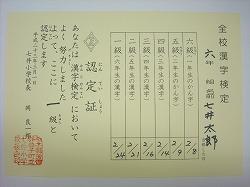 全校漢字検定
六年 組 七井太郎
六級(一年生のかん字) 2/8
五級(二年生のかん字) 2/9
四級(三年生の漢字) 2/14
三級(四年生の漢字) 2/16
二級(五年生の漢字) 2/21
一級(六年生の漢字) 2/24
認定証
にんていしょう
あなたは漢字検定において
よく努力しました
よって、ここに 一 級と
認定します
七井小学校長